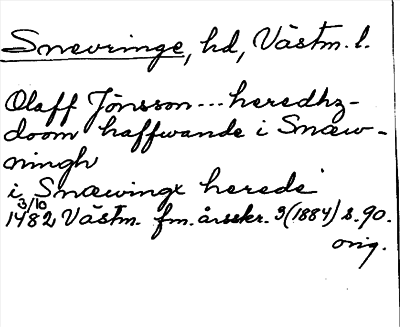 Snevringe, hd, Västm. l.
Olaff Jönsson --- heredhz-
doom haffwande i Snæw-
ningh
i Snæwingx herede
3/10
1482 Västm. fm. årsskr. 3 (1884) s. 90.
orig.